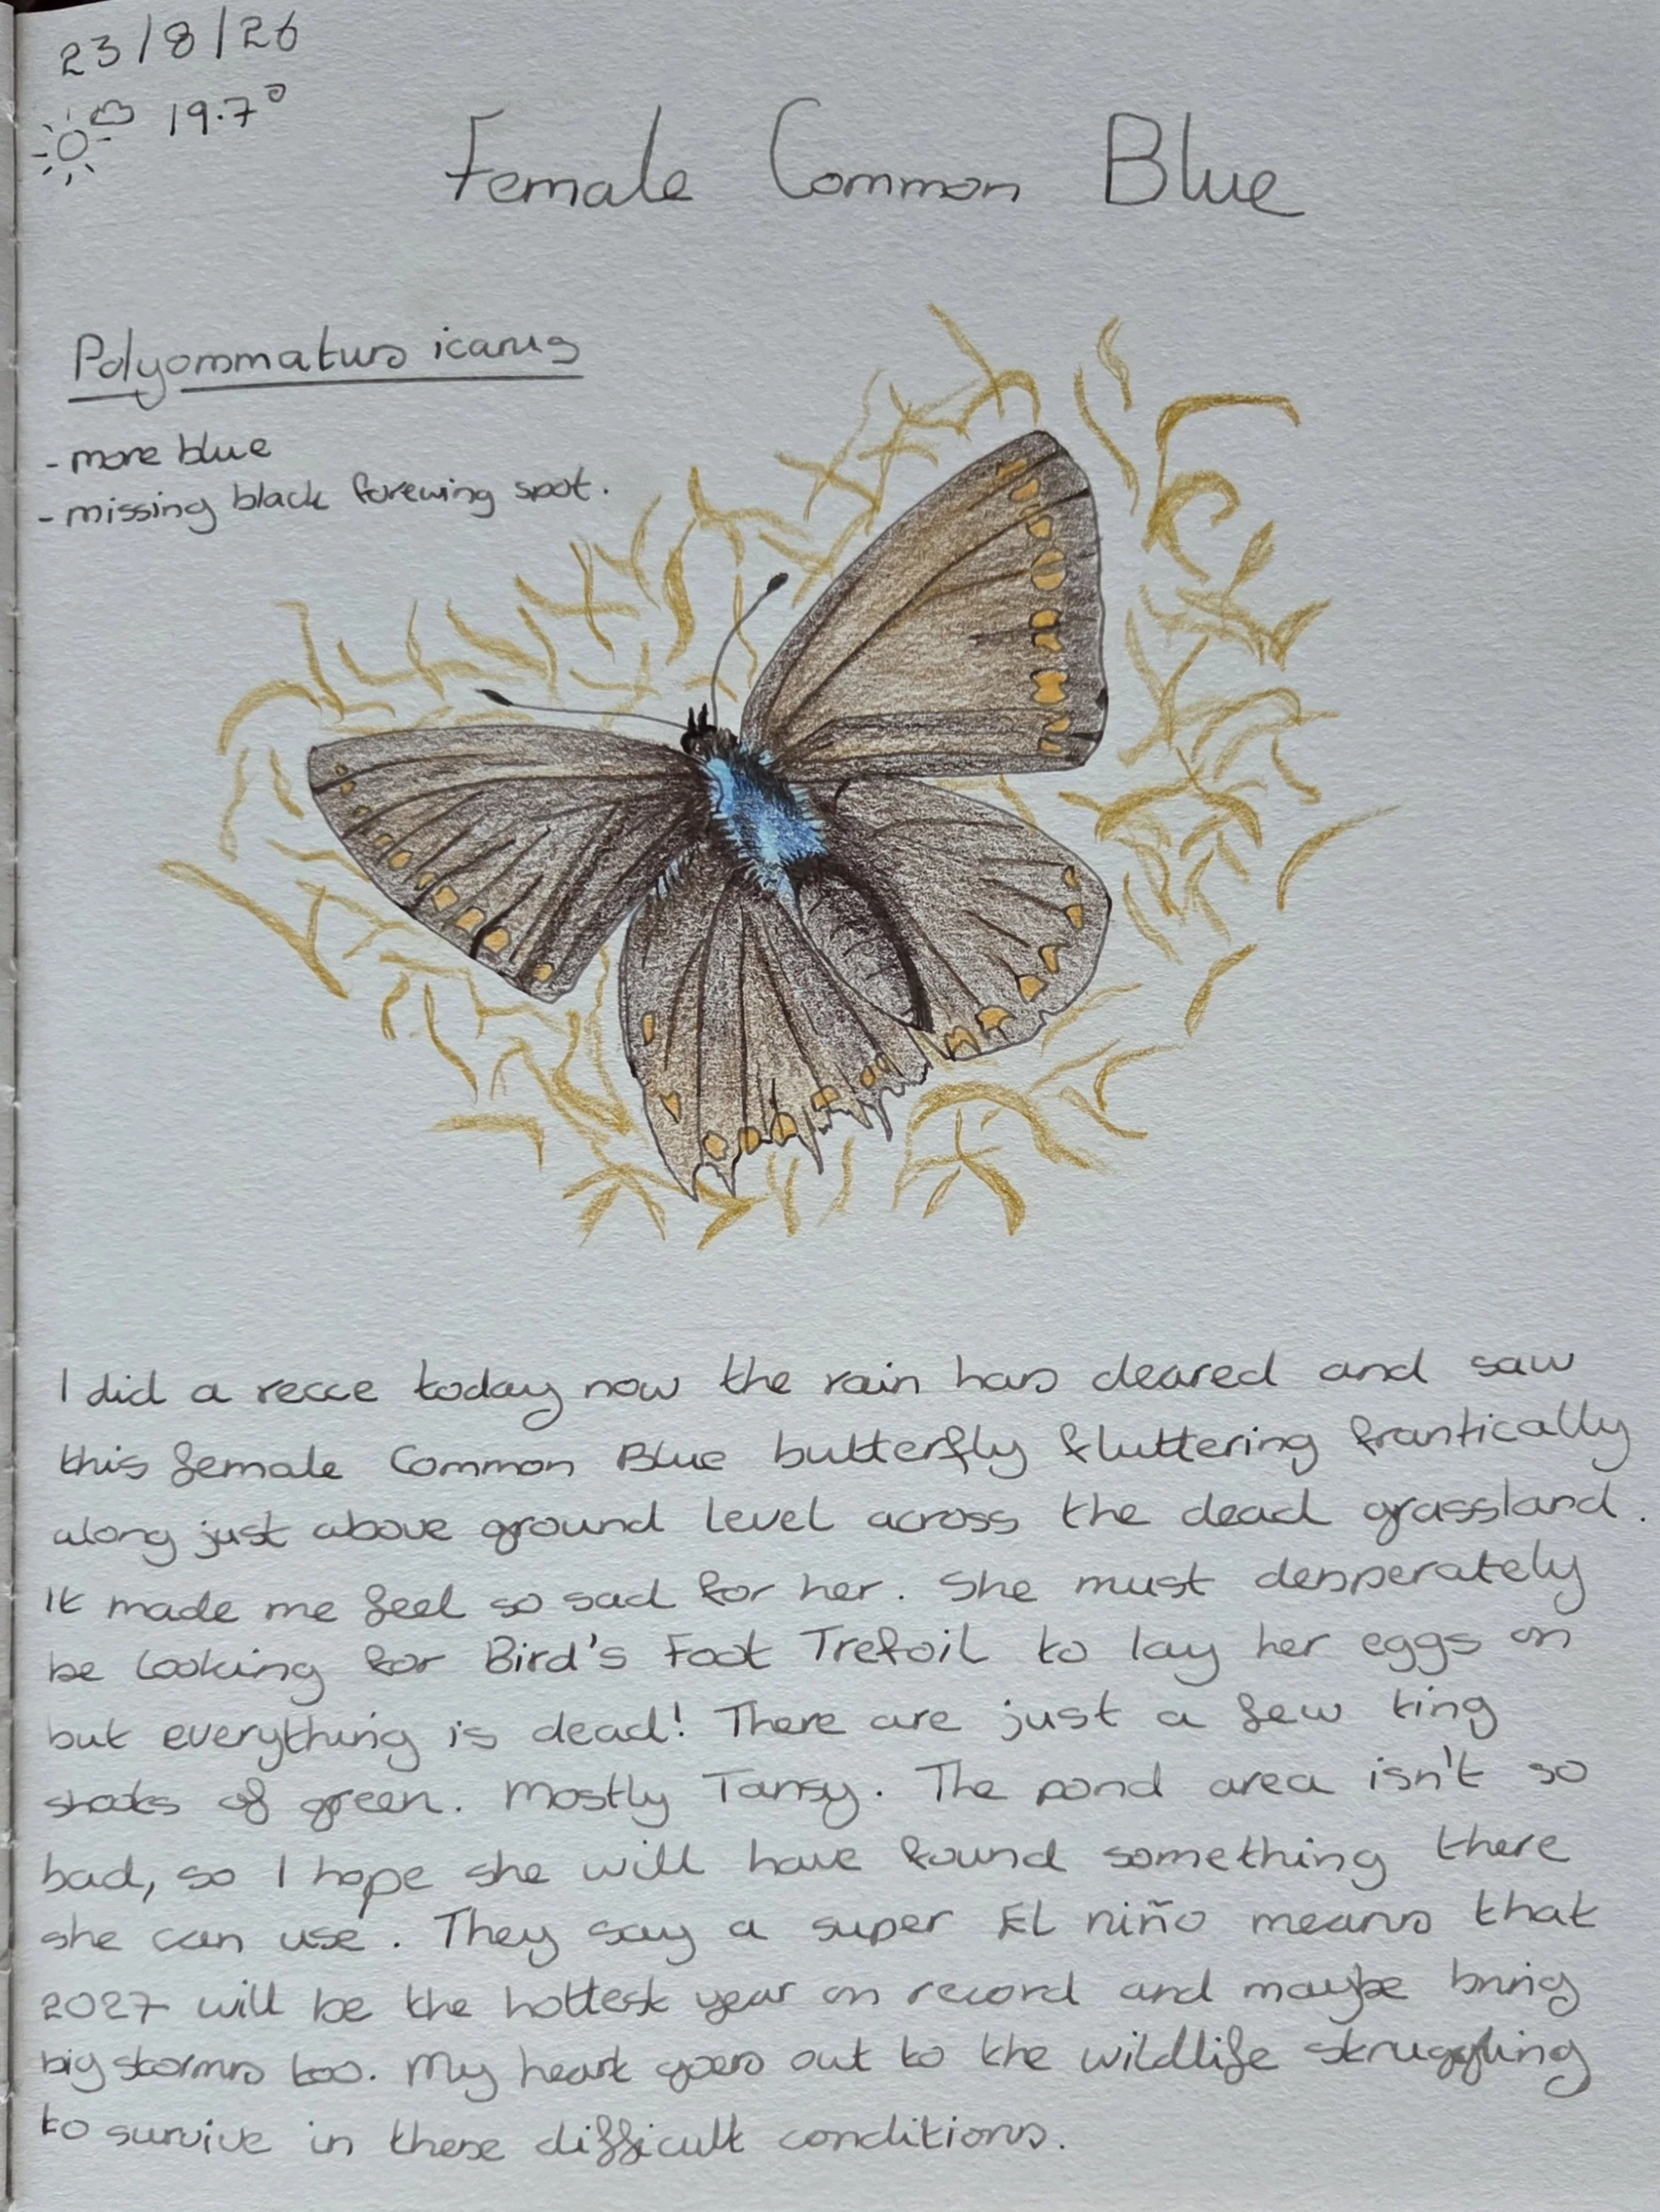 23/8/26
19.7°
Female Common Blue
Polyommatus icarus
- more blue
- missing black forewing spot.
I did a recce today now the rain has cleared and saw
this female Common Blue butterfly fluttering frantically
along just above ground level across the dead grassland.
It made me feel so sad for her. She must desperately
be looking for Bird's Foot Trefoil to lay her eggs on
but everything is dead! There are just a few tiny
shoots of green. Mostly Tansy. The pond area isn't so
bad, so I hope she will have found something there
she can use. They say a super El niño means that
2027 will be the hottest year on record and maybe bring
big storms too. My heart goes out to the wildlife struggling
to survive in these difficult conditions.